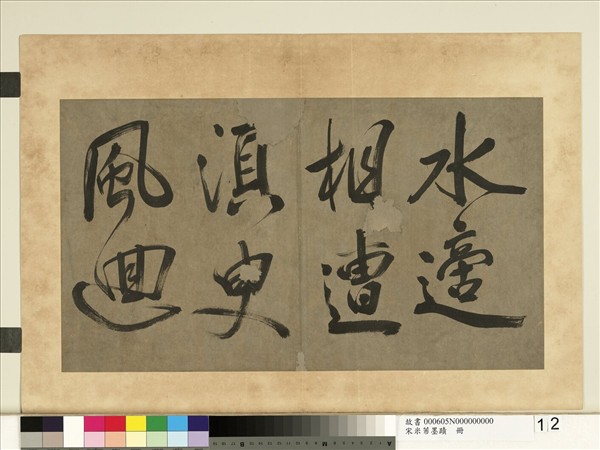 水適
相遭
湏臾
風迴
故書 000605N000000000
宋米芾墨蹟 冊
12